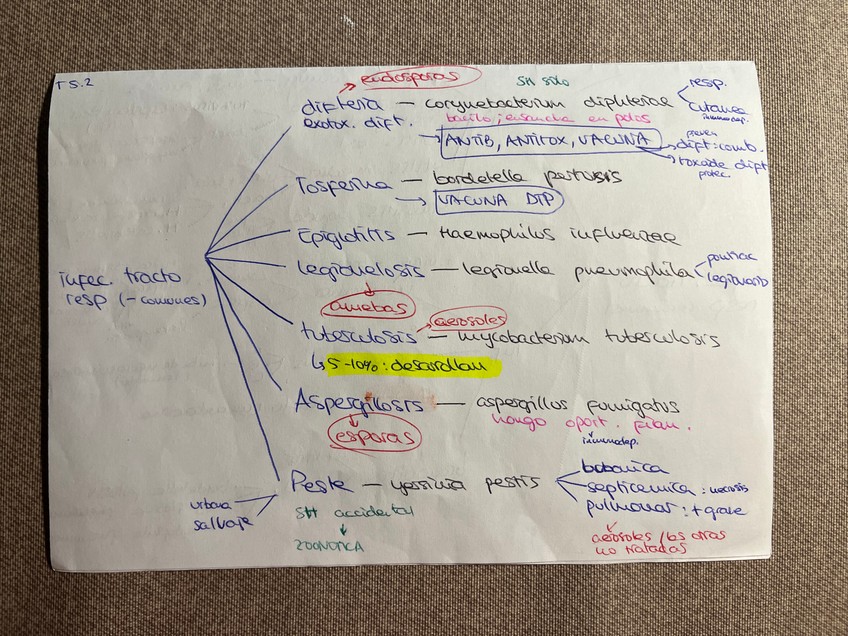 T5.2
endosporas
SH solo
resp.
difteria — corynebacterium diphteriae
cutanea
inmunodep.
exotox. dift.
bacilo; ensancha en polos
ANTIB, ANTITOX, VACUNA
preven
dift: comb.
toxoide dift
protec
Tosferina — bordetella pertusis
VACUNA DTP
Epiglotitis — Haemophilus influenzae
legionelosis — legionella pneumophila
pontiac
infec. tracto
resp (- comunes)
amebas
aerosoles
tuberculosis — mycobacterium tuberculosis
5-10%: desarrollan
Aspergilosis — aspergillus fumigatus
hongo oport. filam.
inmunodep.
esporas
Peste — yersinia pestis
bubonica
septicemica: necrosis
pulmonar: + grave
urbana
salvaje
SH accidental
ZOONOTICA
aerosoles / las otras
no tratadas